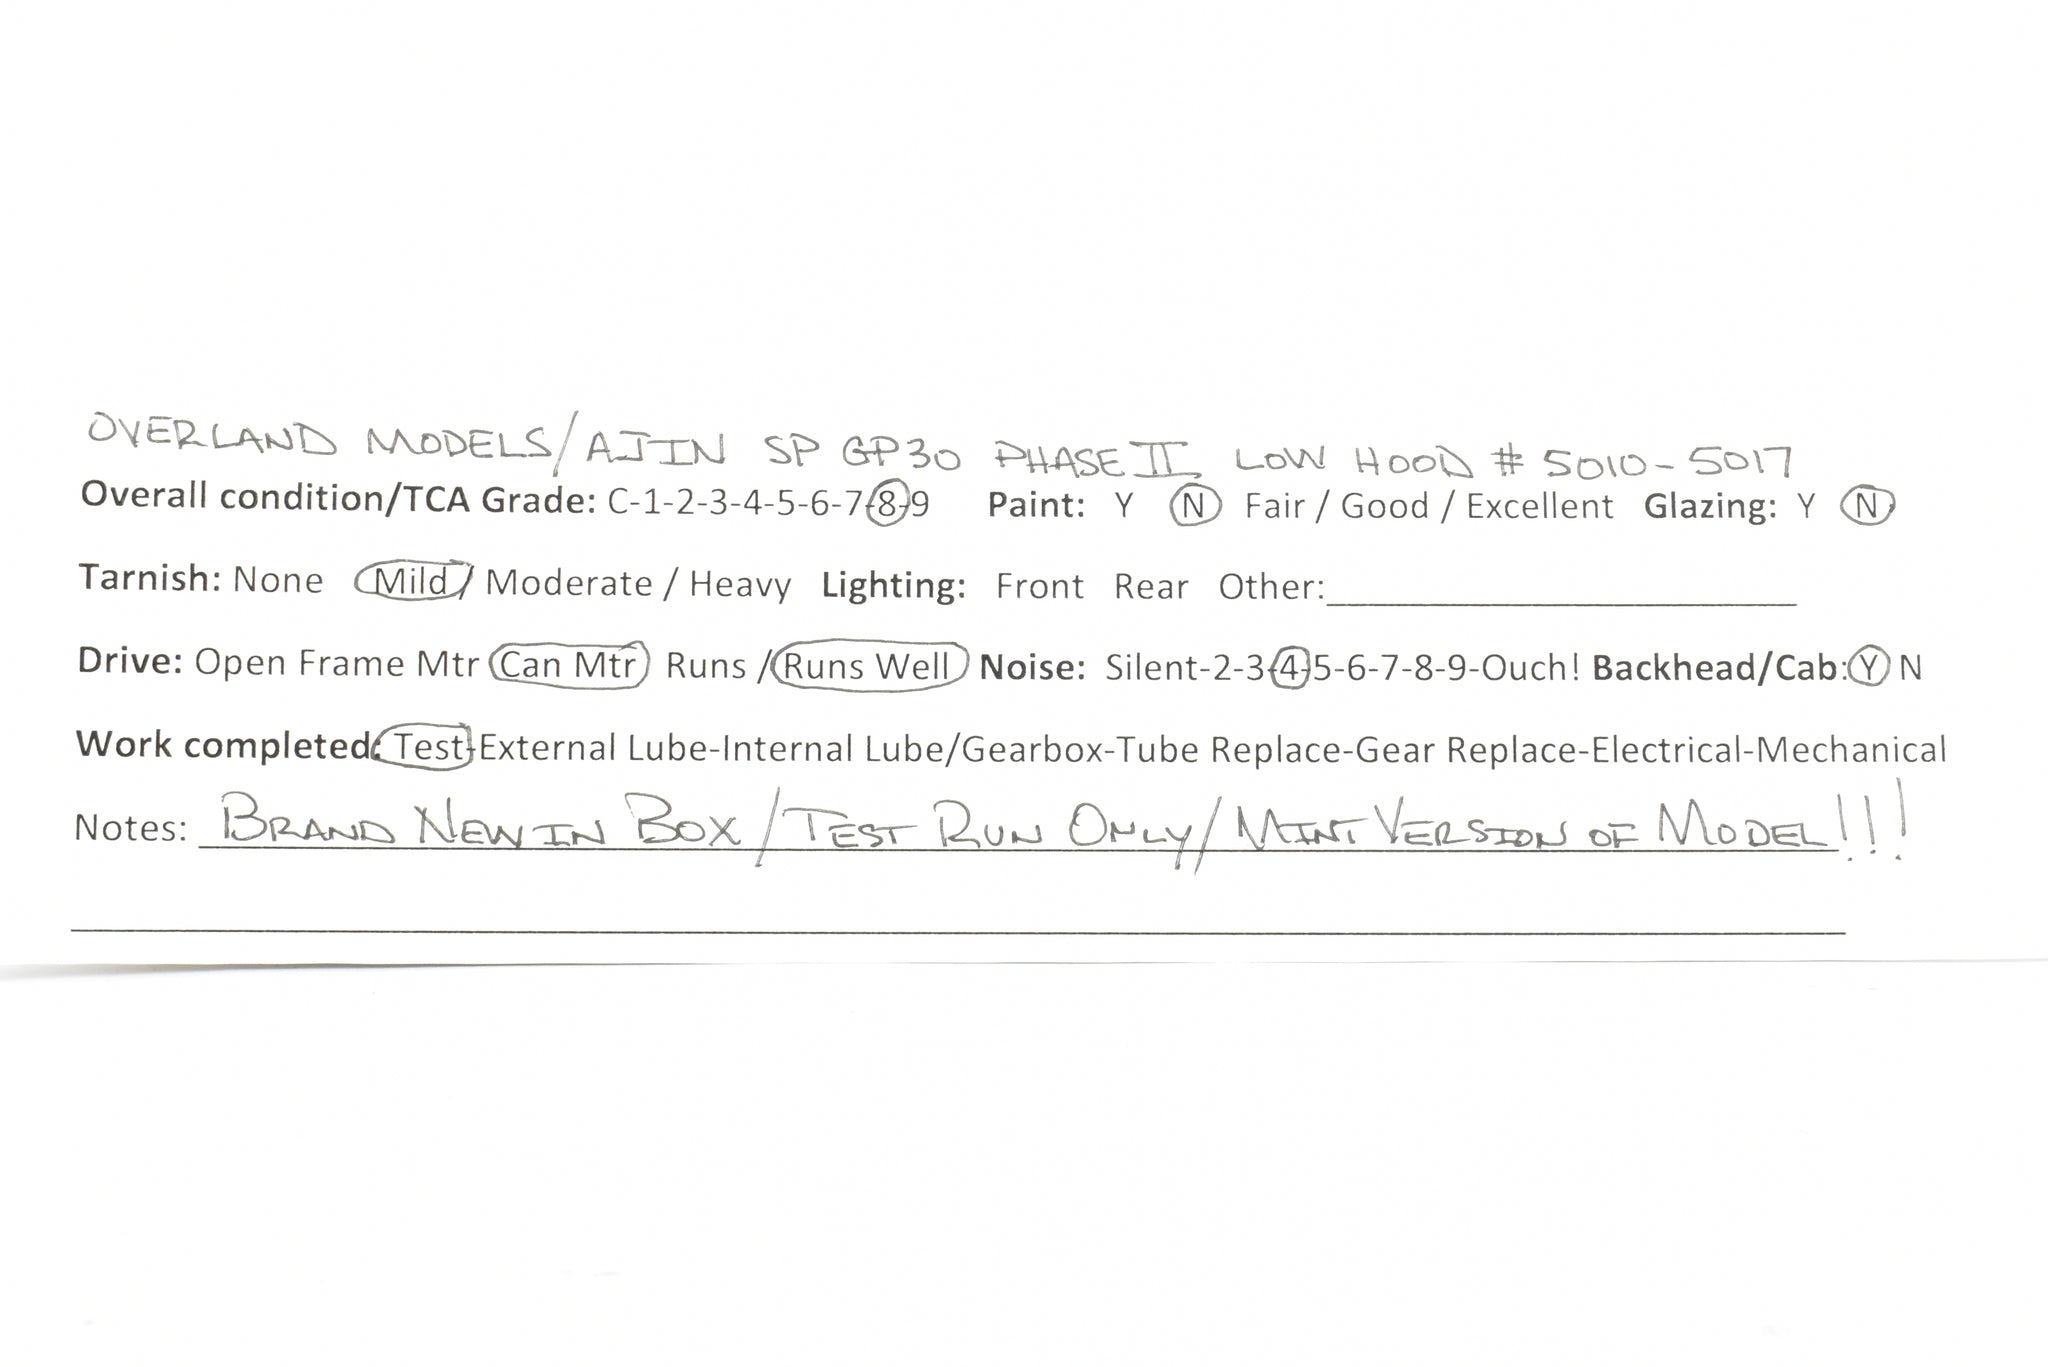 OVERLAND MODELS/AJIN SP GP30 PHASE II, LOW HOOD # 5010-5017
Overall condition/TCA Grade: C-1-2-3-4-5-6-7-8-9 Paint: Y N Fair / Good / Excellent Glazing: Y N
Tarnish: None Mild / Moderate / Heavy Lighting: Front Rear Other:
Drive: Open Frame Mtr Can Mtr Runs / Runs Well Noise: Silent-2-3-4-5-6-7-8-9-Ouch! Backhead/Cab: Y N
Work completed: Test-External Lube-Internal Lube/Gearbox-Tube Replace-Gear Replace-Electrical-Mechanical
Notes: BRAND NEW IN BOX / TEST RUN ONLY / MINT VERSION OF MODEL!!!